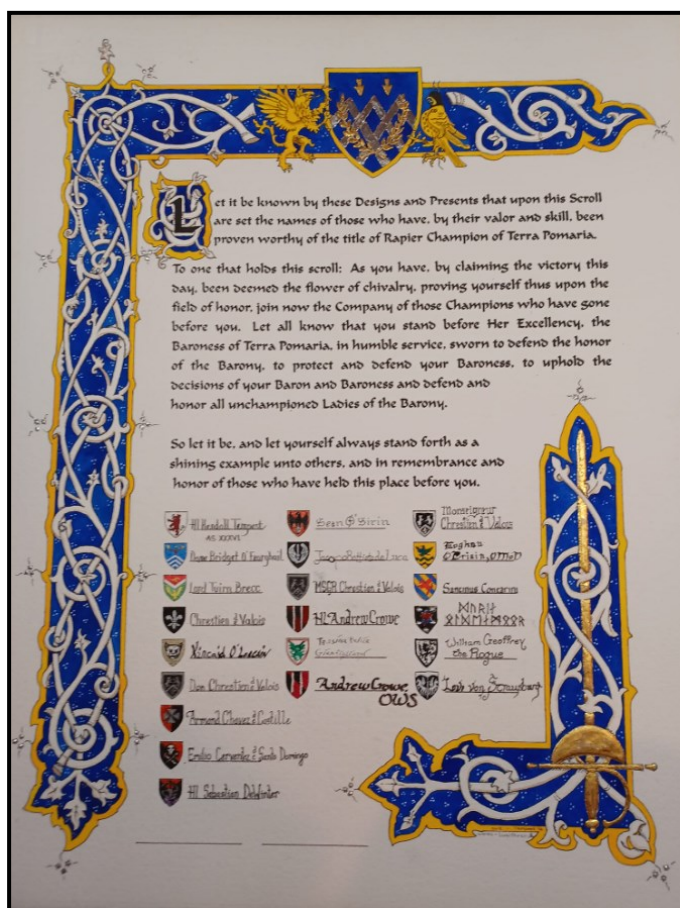 Let it be known by these Designs and Presents that upon this Scroll
are set the names of those who have, by their valor and skill, been
proven worthy of the title of Rapier Champion of Terra Pomaria.
To one that holds this scroll: As you have, by claiming the victory this
day, been deemed the flower of chivalry, proving yourself thus upon the
field of honor, join now the Company of those Champions who have gone
before you. Let all know that you stand before Her Excellency, the
Baroness of Terra Pomaria, in humble service, sworn to defend the honor
of the Barony, to protect and defend your Baroness, to uphold the
decisions of your Baron and Baroness and defend and
honor all unchampioned Ladies of the Barony.
So let it be, and let yourself always stand forth as a
shining example unto others, and in remembrance and
honor of those who have held this place before you.
Hl Kendall Tempest
AS XXXVI
Dame Bridget
Lord Tuirn Brecc
Chrestien d Valois
Kincaid O'
Don Chrestien d Valois
Armond Chavez d Castille
Emilio Cervantez d Santo Domingo
Hl Sebastian
Sean O'Sirin
MSGR Chrestien d Valois
HL Andrew Crowe
Andrew Crowe
OWS
Monseigneur
Chrestien d Valois
Eoghan
O'Briain, OMoD
William Geoffrey
the Rogue
von Strausburg